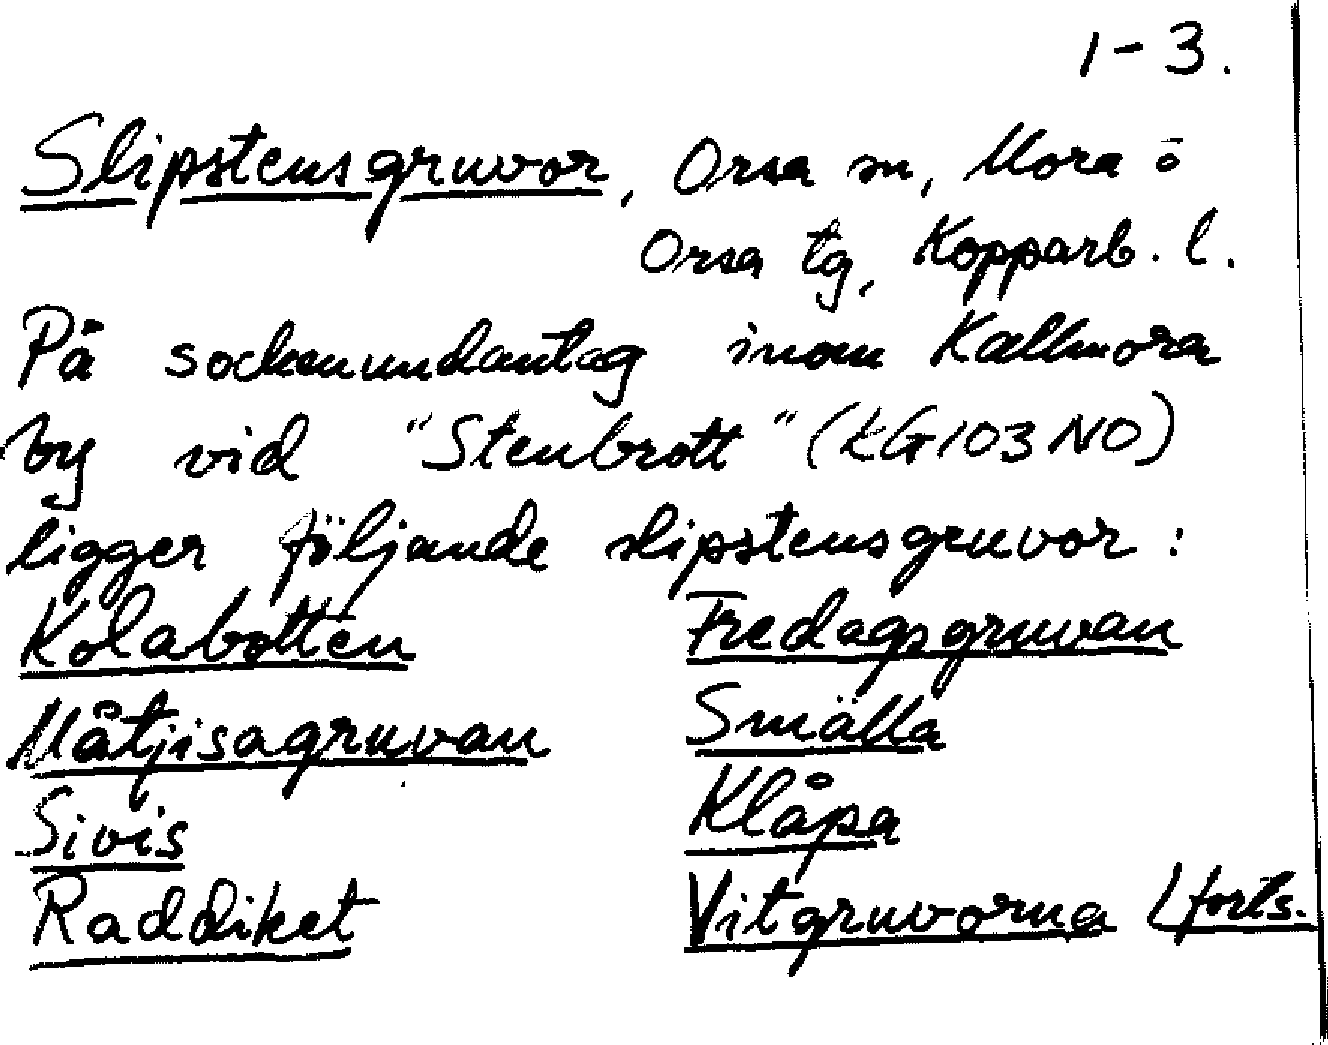 1-3.
Slipstensgruvor, Orsa sn, Mora o
Orsa tg, Kopparb. l.
På sockenundantag inom Kallmora
by vid "Stenbrott" (KG103NO)
ligger följande slipstensgruvor:
Kolabotten Fredagsgruvan
Måtjisagruvan Smälla
Sivis Klåpa
Raddiket Vitgruvorna Lforts.